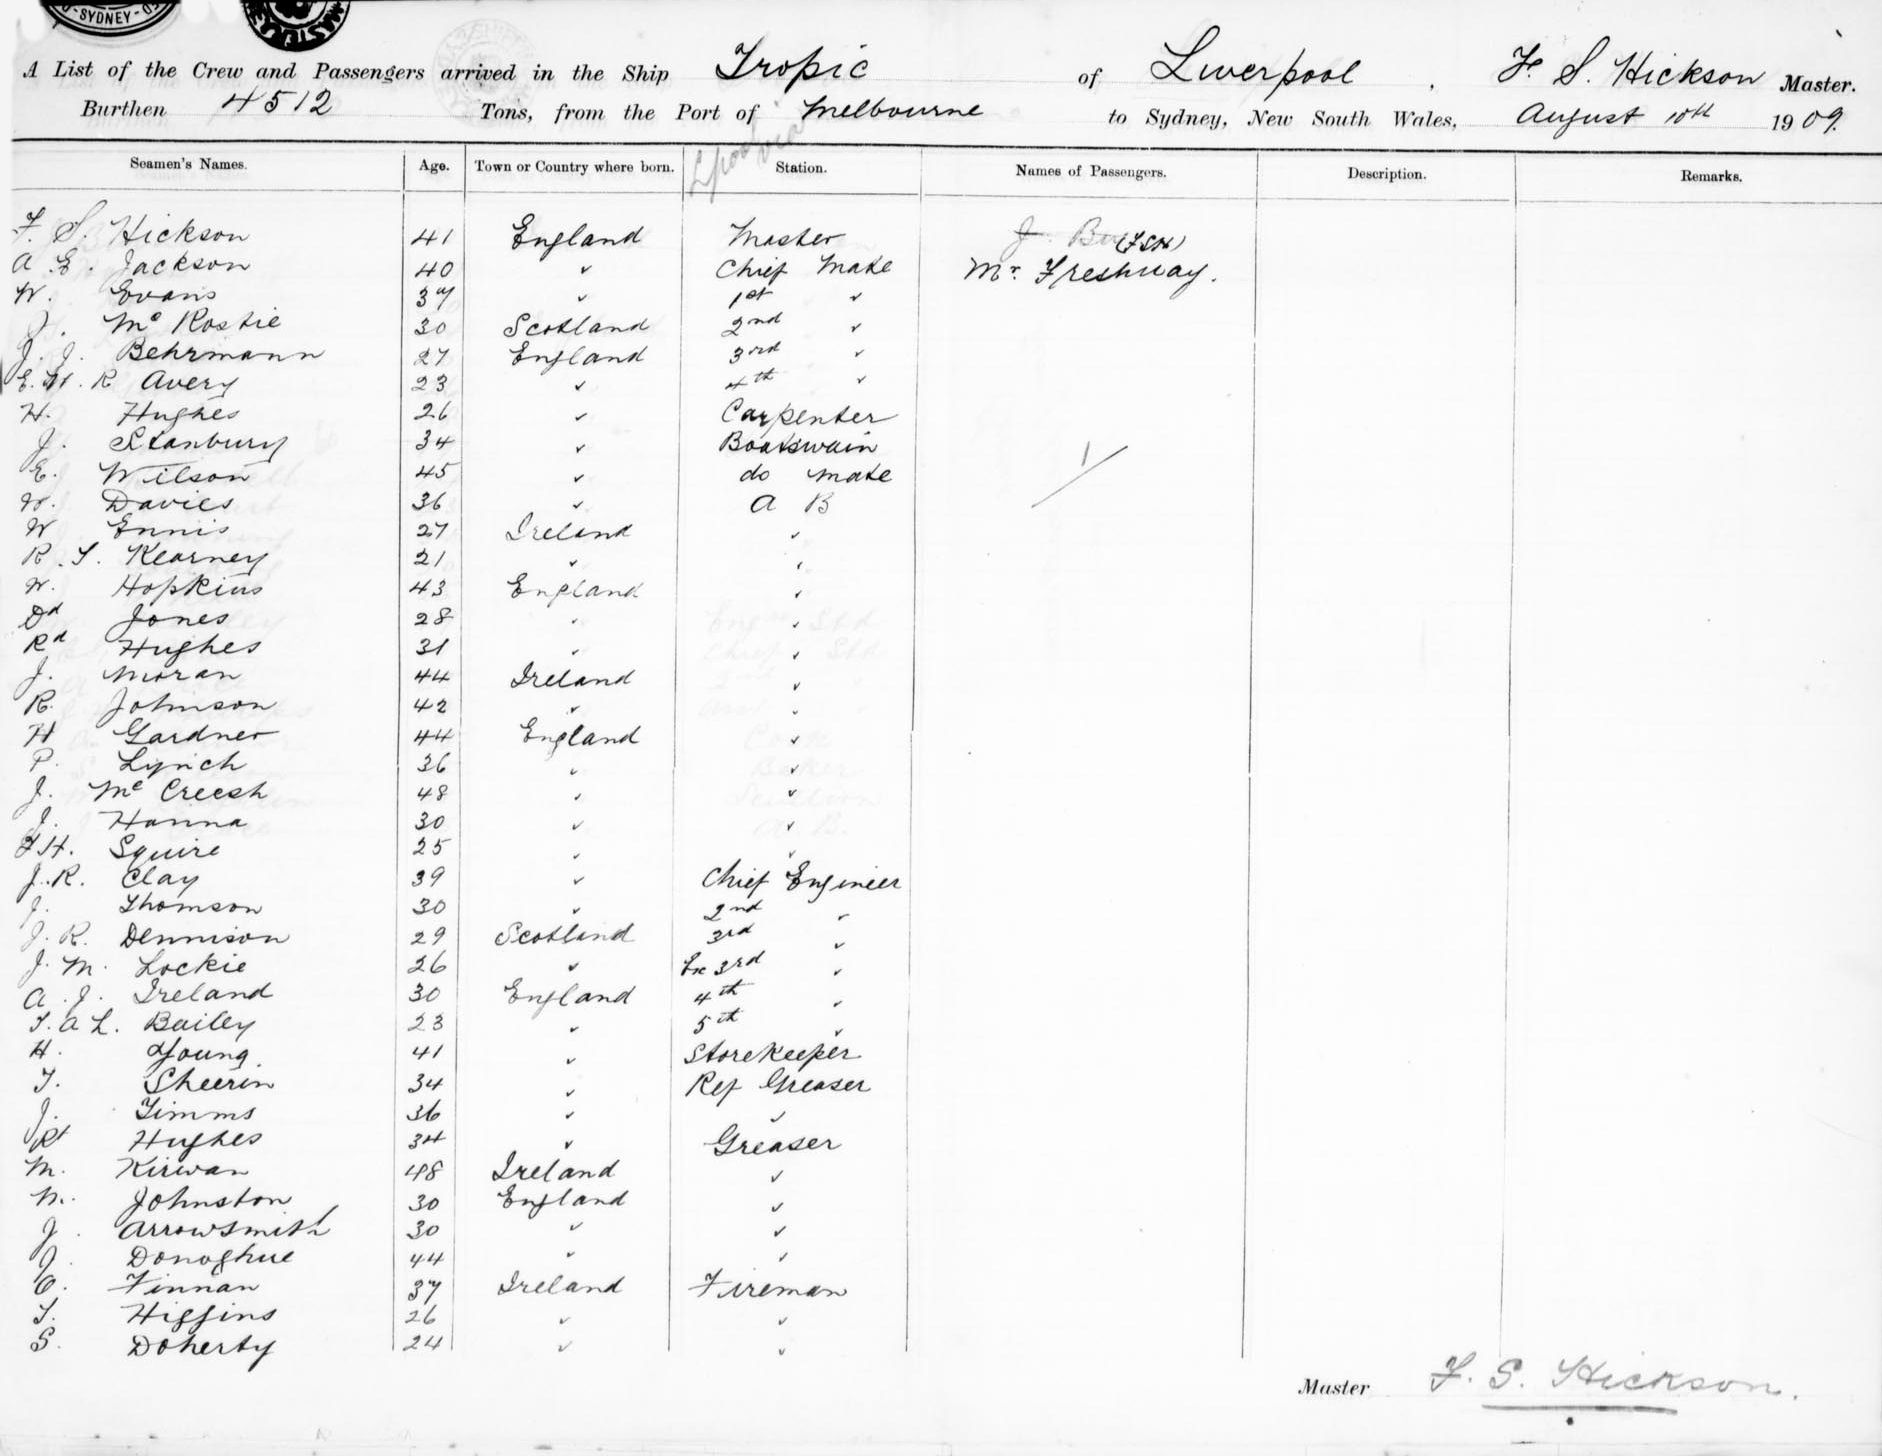 SYDNEY
A List of the Crew and Passengers arrived in the Ship Tropic of Liverpool, F. S. Hickson Master.
Burthen 4512 Tons, from the Port of Melbourne to Sydney, New South Wales, August 10th 1909.
L'pool via
Seamen's Names. Age. Town or Country where born. Station. Names of Passengers. Description. Remarks.
F. S. Hickson 41 England Master J. (FSH)
A. E. Jackson 40 " Chief Mate Mr. Freshway.
W. Evans 37 " 1st "
J. Mc Rostie 30 Scotland 2nd "
J. J. Behrmann 27 England 3rd "
E. W. R Avery 23 " 4th "
H. Hughes 26 " Carpenter
J. Stanbury 34 " Boatswain
1
E. Wilson 45 " do Mate
W. Davies 36 " A B
W Ennis 27 Ireland "
R. T. Kearney 21 " "
W. Hopkins 43 England "
Dd Jones 28 " "
Rd Hughes 31 " "
J. Moran 44 Ireland "
R. Johnson 42 " "
H Gardner 44 England "
P. Lynch 36 " "
J. Mc Creesh 48 " "
J. Hanna 30 " "
F H. Squire 25 " "
J. R. Clay 39 " Chief Engineer
J. Thomson 30 " 2nd "
J. R. Dennison 29 Scotland 3rd "
J. M. Lockie 26 " Ex 3rd "
A. J. Ireland 30 England 4th "
T. A L. Bailey 23 " 5th "
H. Young 41 " Storekeeper
T. Sheerin 34 " Ref Greaser
J. Timms 36 " "
Rt Hughes 34 " Greaser
M. Kirwan 48 Ireland "
W. Johnston 30 England "
J. Arrowsmith 30 " "
J. Donoghue 44 " "
O. Finnan 37 Ireland Fireman
T. Higgins 26 " "
S. Doherty 24 " "
Master F. S. Hickson.